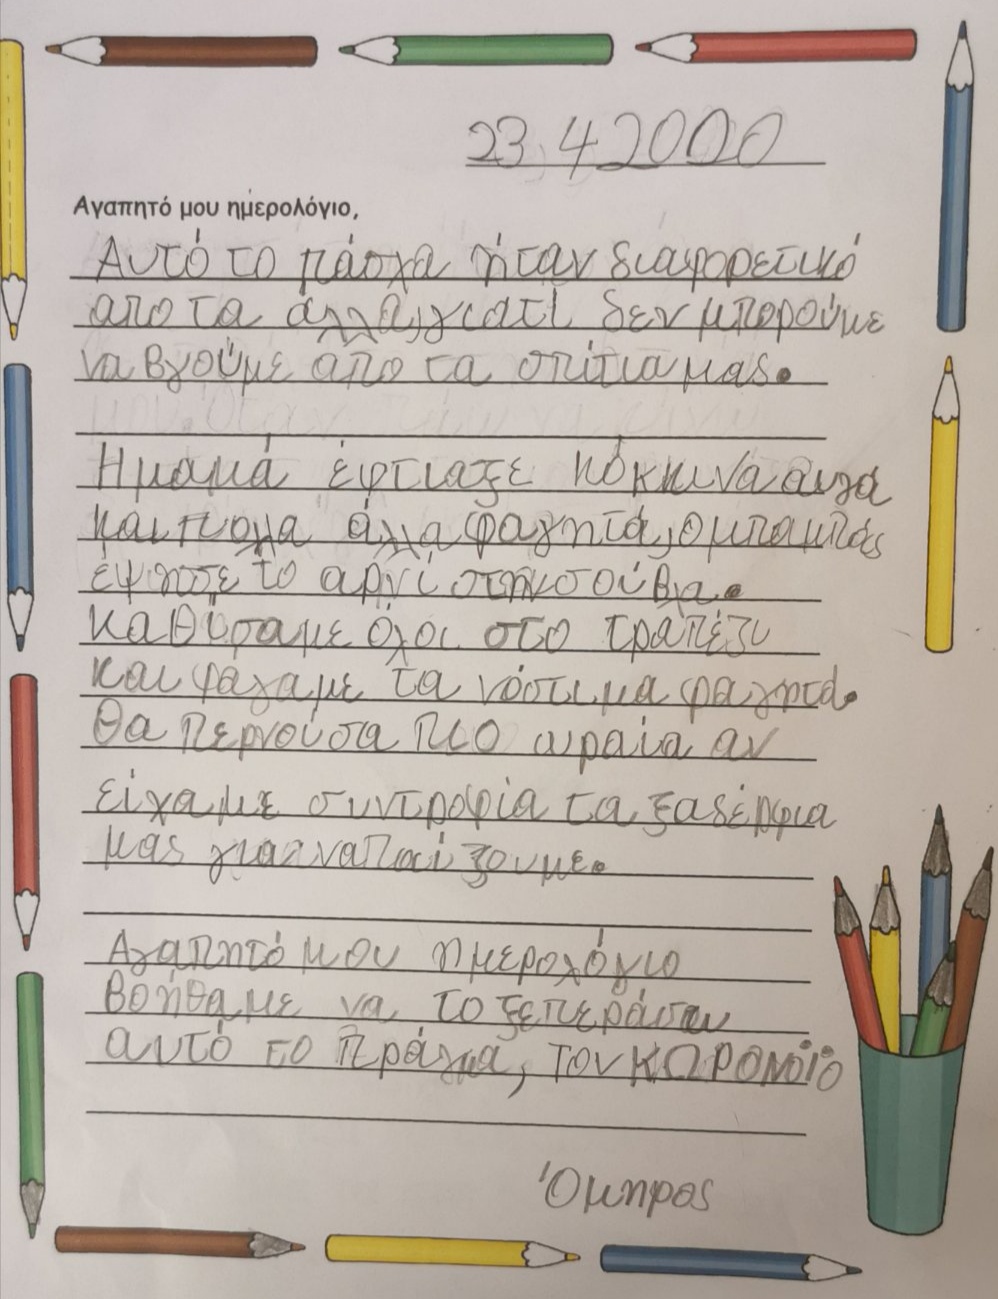 23.4 2000
Αγαπητό μου ημερολόγιο,
Αυτό το πάσχα ήταν διαφορετικό
απο τα άλλα, γιατί δεν μπορούμε
να βγούμε απο τα σπίτια μας.
Η μαμά έφτιαξε κόκκινα αυγά
και πολλα άλλα φαγητά, ο μπαμπάς
έψησε το αρνί στην σούβλα.
Καθίσαμε όλοι στο τραπέζι
και φάγαμε τα νόστιμα φαγητά.
Θα περνούσα πιο ωραία αν
είχαμε συντροφία τα ξαδέρφια
μας για να παίζουμε.
Αγαπητό μου ημερολόγιο
βοήθα με να το ξεπεράσω
αυτό το πράγμα, τον ΚΩΡΟΝΟΪΟ
Όμηρος